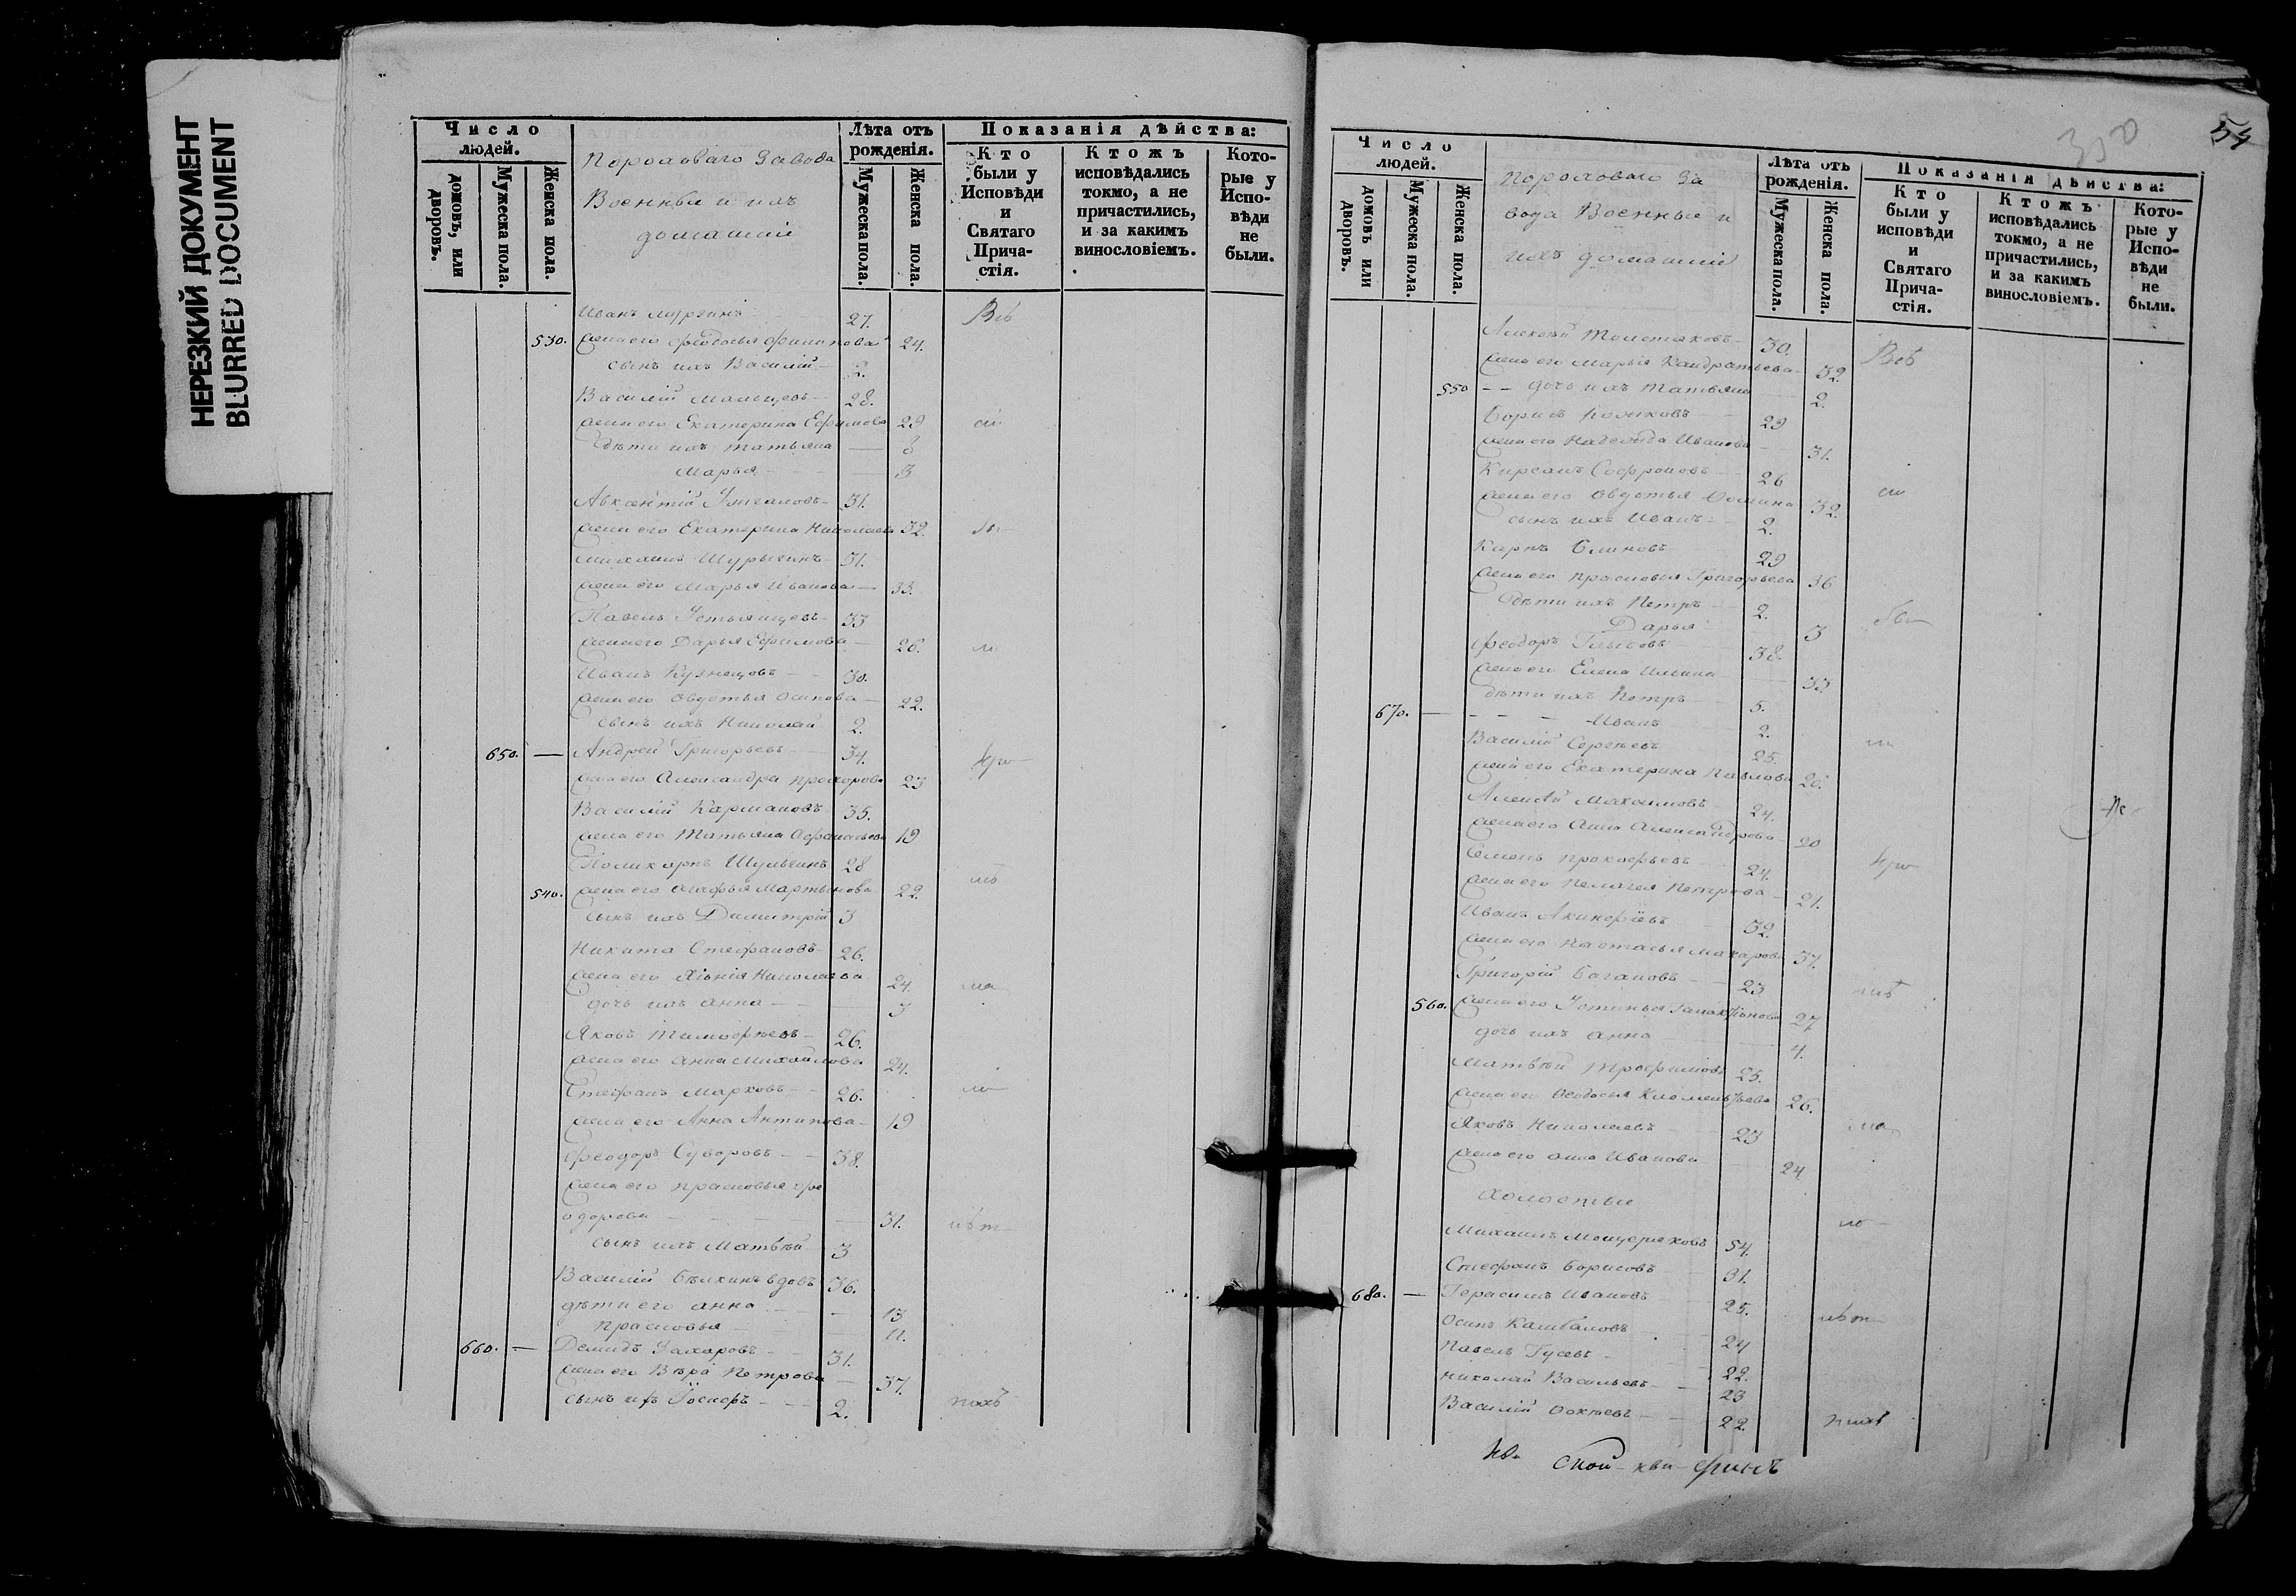 НЕРЕЗКИЙ ДОКУМЕНТ
BLURRED DOCUMENT
Число людей.
домовъ, или дворовъ.
Мужеска пола.
Женска пола.
Пороховаго завода
Военные и ихъ
домашніи
Лѣта отъ рожденія.
Мужеска пола.
Женска пола.
Показанія дѣйства:
Кто были у Исповѣди и Святаго Причастія.
Ктожъ исповѣдались токмо, а не причастились, и за какимъ винословіемъ.
Которые у Исповѣди не были.
Иванъ 27.
530. жена его Ѳеодосья Филипова 24.
сынъ ихъ Василій 2.
Василій Мальцевъ 28.
жена его Екатерина Ефимова 29
дѣти ихъ Татьяна 8
Марья 3
Авксентій 31.
жена его Екатерина Николаева 32.
Михаилъ Шурыгинъ 31.
жена его Марья Иванова 33.
Павелъ Устьянцевъ 33
жена его Дарья Ефимова 26.
Иванъ Кузнецовъ 30.
жена его Овдотья Осипова 22.
сынъ ихъ Николай 2.
650. Андрей Григорьевъ 34.
жена его Александра Прохорова 23
Василій Кармановъ 35.
жена его Татьяна Афанасьева 19
Поликарпъ Шульгинъ 28
540. жена его Агафья Мартынова 22.
сынъ ихъ Димитрій 3
Никита Стефановъ 26.
жена его Ксѣнія Николаева 24.
дочь ихъ Анна 3
Яковъ Тимофѣевъ 26.
жена его Анна Михайлова 24.
Стефанъ Марковъ 26.
жена его Анна Антипова 19
Ѳеодоръ Суворовъ 38.
жена его Прасковья Ѳе
одорова 31.
сынъ ихъ Матвѣй 3
Василій Бѣлкинъ вдовъ 36.
дѣти его Анна 13
Прасковья 11.
660. Демидъ Захаровъ 31.
жена его Вѣра Петрова 37.
сынъ ихъ Іосифъ 2.
300
54
Число людей.
домовъ или дворовъ.
Мужеска пола.
Женска пола.
Пороховаго за
вода Военные и
ихъ домашніи
Лѣта отъ рожденія.
Мужеска пола.
Женска пола.
Показанія дѣйства:
Кто были у исповѣди и Святаго Причастія.
Ктожъ исповѣдались токмо, а не причастились, и за какимъ винословіемъ.
Которые у Исповѣди не были.
Алексѣй 30.
жена его Марья Кандратьева 32.
550 дочь ихъ Татьяна 2.
Борисъ 29
жена его Надежда Иванова 31.
Кирсанъ Софроновъ 26
жена его Овдотья Фомина 32.
сынъ ихъ Иванъ 2.
Карпъ Блиновъ 29
жена его Прасковья Григорьева 36
дѣти ихъ Петръ 2.
Дарья 3
Ѳеодоръ Глыбовъ 38.
жена его Елена Ильина 33
дѣти ихъ Петръ 5.
670. Иванъ 2.
Василій Сергѣевъ 25.
жена его Екатерина Павлова 26.
Алексѣй Максимовъ 24.
жена его Анна Александрова 20
Семенъ Прокофьевъ 24.
жена его Пелагея Петрова 21.
Иванъ Акинфіевъ 32.
жена его Настасья Макарова 37.
Григорій Багановъ 23
560. жена его Устинья 27
дочь ихъ Анна 4.
Матвѣй Трофимовъ 25.
жена его Ѳеодосья Клементьева 26.
Яковъ Николаевъ 23
жена его Анна Иванова 24
Холостые
Михаилъ Мещеряковъ 54.
Стефанъ Борисовъ 31.
680. Герасимъ Ивановъ 25.
Осипъ Камбаловъ 24
Павелъ Гусевъ 22.
Николай Васильевъ 23
Василій Фокѣевъ 22.